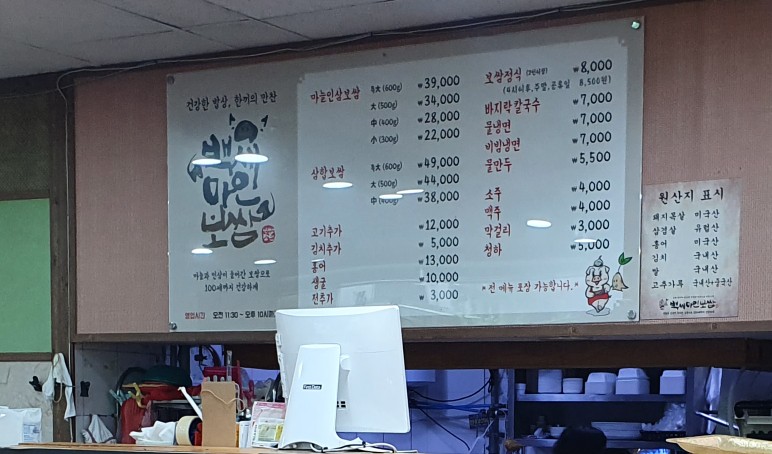 건강한 밥상, 한끼의 만찬
백세
마인
보쌈
마늘과 인삼이 들어간 보쌈으로
100세까지 건강하게
영업시간 오전 11:30 ~ 오후 10시
마늘인삼보쌈 특大 (600g) ₩ 39,000
大 (500g) ₩ 34,000
中 (400g) ₩ 28,000
小 (300g) ₩ 22,000
삼합보쌈 특大 (600g) ₩ 49,000
大 (500g) ₩ 44,000
中 (400g) ₩ 38,000
고기추가 ₩ 12,000
김치추가 ₩ 5,000
홍어 ₩ 13,000
생굴 ₩ 10,000
전추가 ₩ 3,000
보쌈정식 (2인이상) ₩ 8,000
(4시이후, 주말, 공휴일 8,500원)
바지락칼국수 ₩ 7,000
물냉면 ₩ 7,000
비빔냉면 ₩ 7,000
물만두 ₩ 5,500
소주 ₩ 4,000
맥주 ₩ 4,000
막걸리 ₩ 3,000
청하 ₩ 5,000
* 전 메뉴 포장 가능합니다. *
원산지 표시
돼지목살 미국산
삼겹살 유럽산
홍어 미국산
김치 국내산
쌀 국내산
고추가루 국내산+중국산
백세마인보쌈
First Data